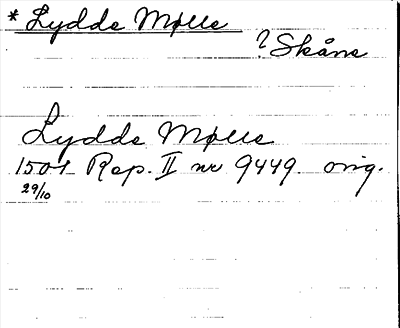 * Lydde Mølle
? Skåne
Lydde Mølle
1501 Rep. II nr 9449. orig.
29/10